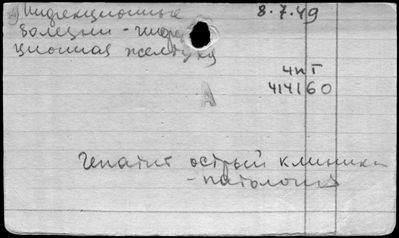 Инфекционные 8.7.49
болезни - инфек
ционная желтуха
4пТ
414160
А
Гепатит острый клиника
-патология